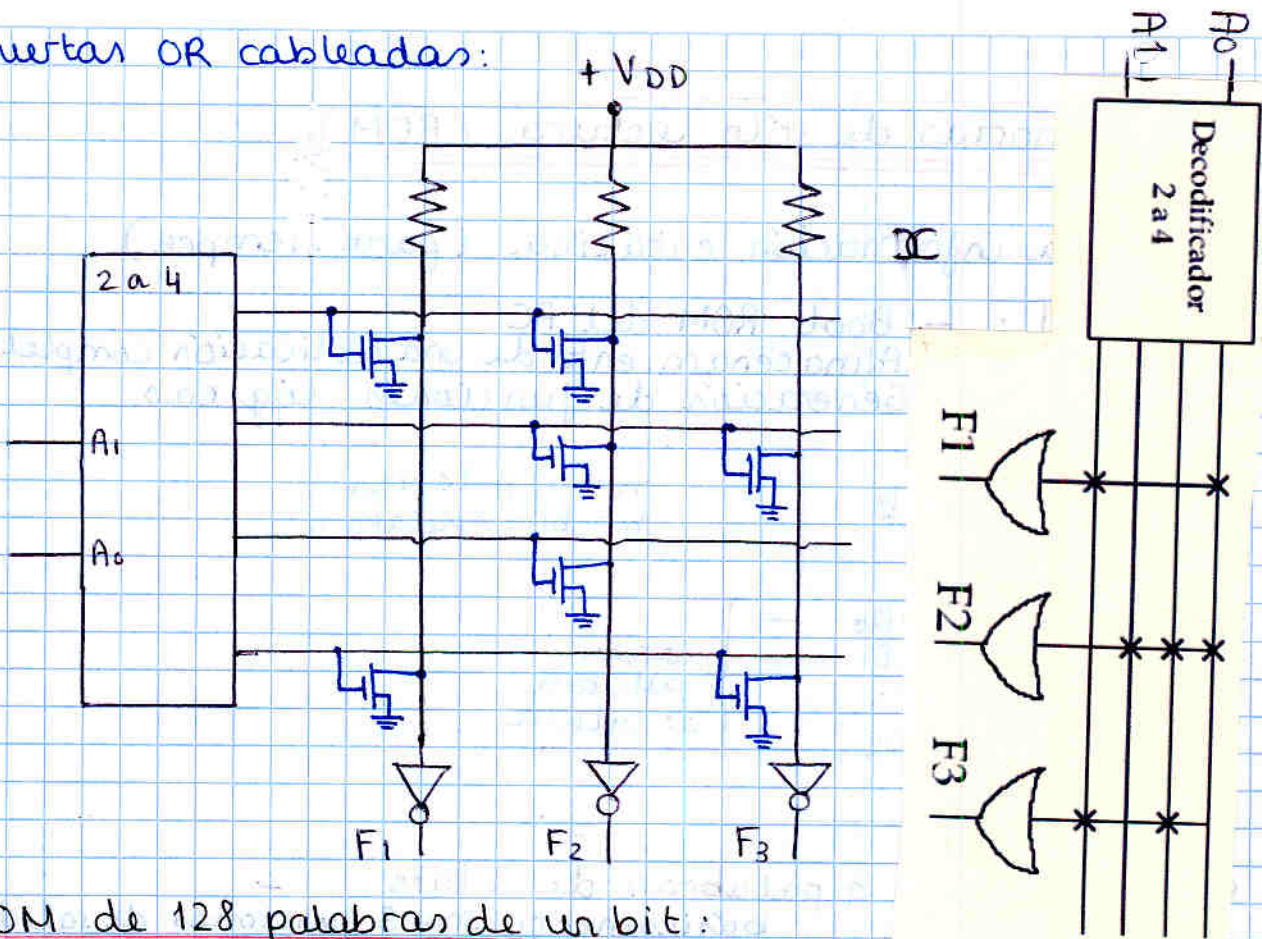 uertas OR cableadas:
+ VDD
2 a 4
A1
A0
F1
F2
F3
OM de 128 palabras de un bit:
A0
A1
Decodificador
2 a 4
F1
F2
F3